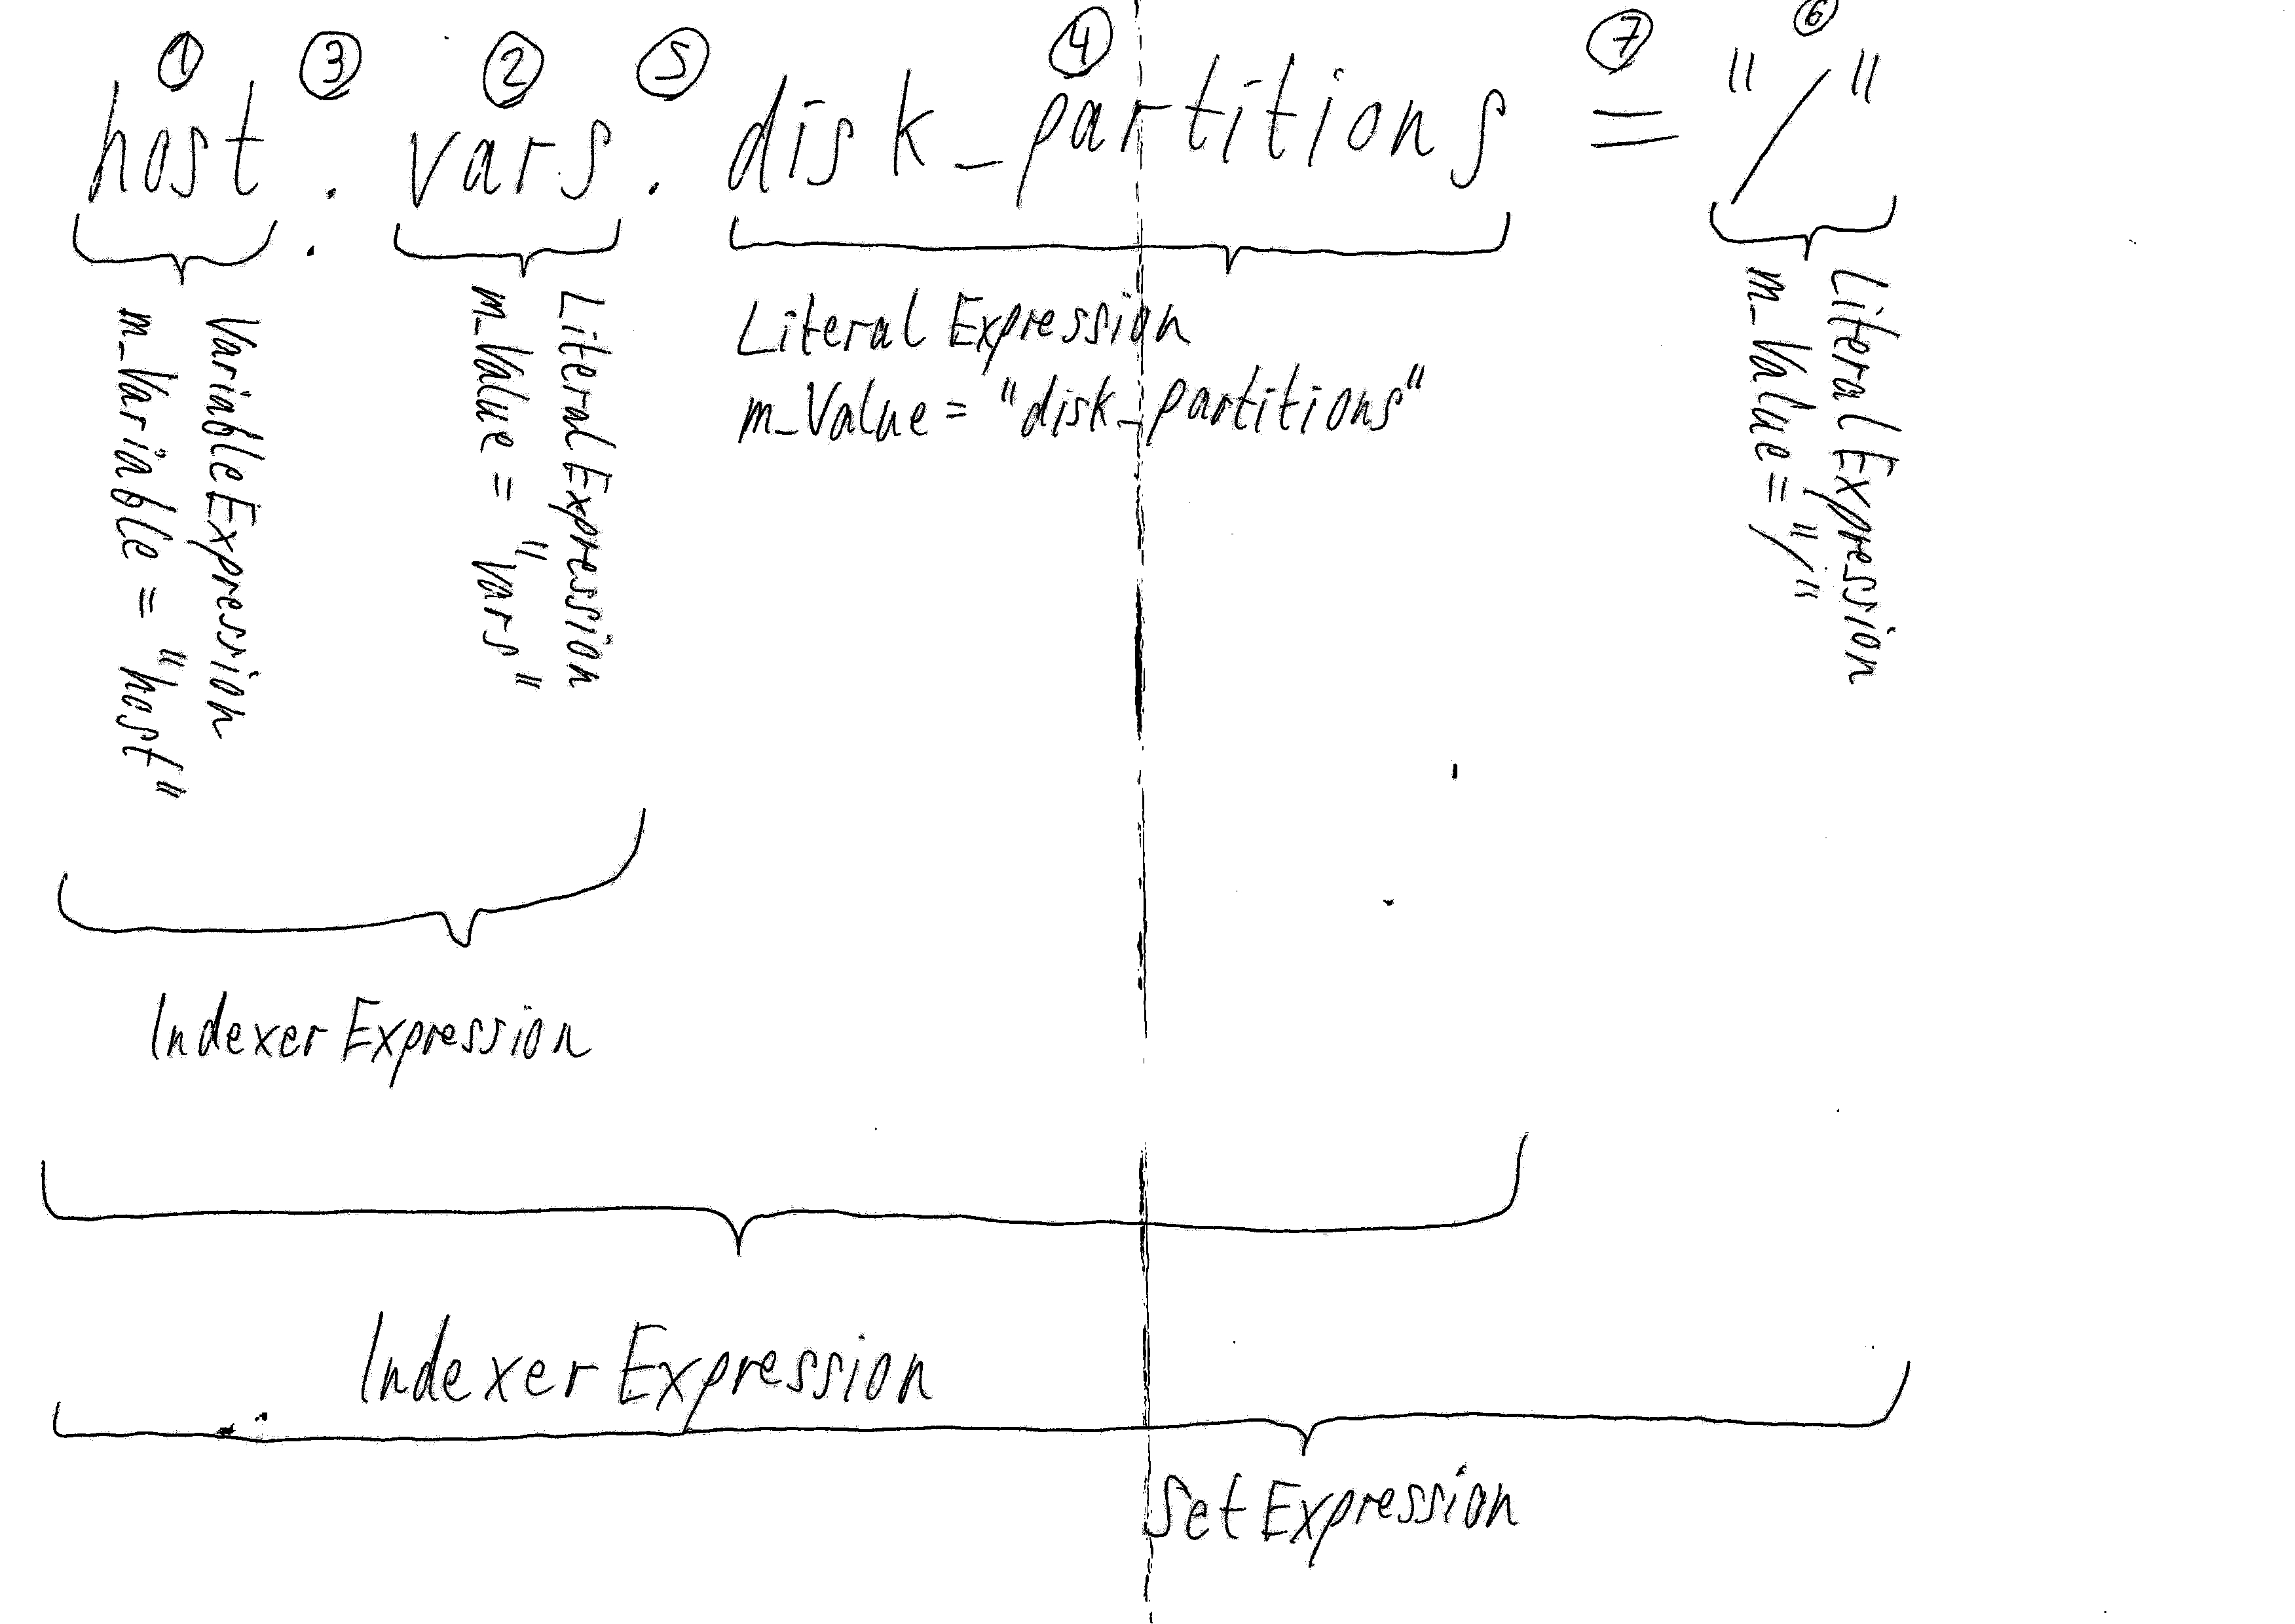 1 3 2 5 4 7 6
host . vars . disk_partitions = "/"
VariableExpression
m_Variable = "host"
LiteralExpression
m_Value = "vars"
Literal Expression
m_Value = "disk_partitions"
LiteralExpression
m_Value = "/"
Indexer Expression
Indexer Expression
Set Expression